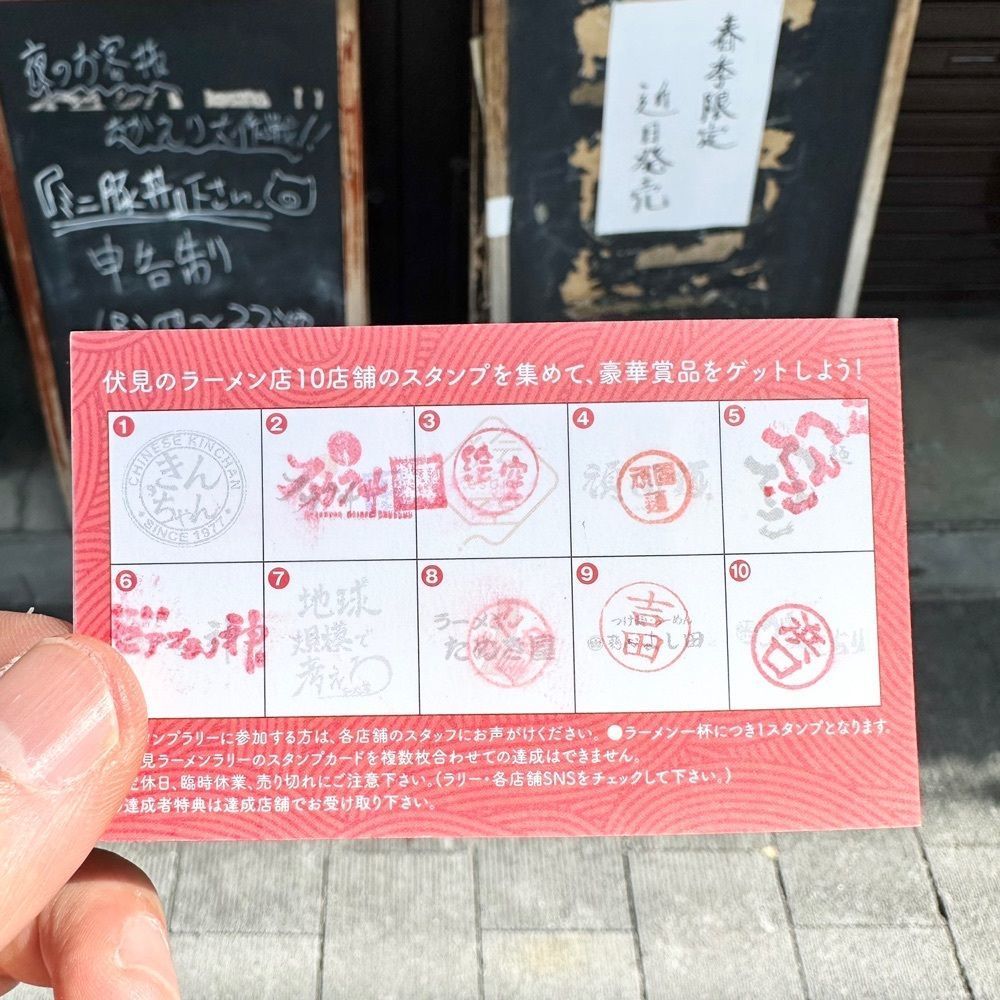 夜のお客様
おかえり大作戦!!
『ミニ豚丼』下さい。
申告制
春季限定
近日発売
伏見のラーメン店10店舗のスタンプを集めて、豪華賞品をゲットしよう!
1
CHINESE KINCHAN
きんちゃん
SINCE 1977
2
3
空
4
5
6
神
7
地球
規模で
考えろ
8
ラーメン
9
吉田
つけめん・らーめん
よし田
10
ンプラリーに参加する方は、各店舗のスタッフにお声がけください。●ラーメン一杯につき1スタンプとなります。
見ラーメンラリーのスタンプカードを複数枚合わせての達成はできません。
定休日、臨時休業、売り切れにご注意下さい。(ラリー・各店舗SNSをチェックして下さい。)
達成者特典は達成店舗でお受け取り下さい。